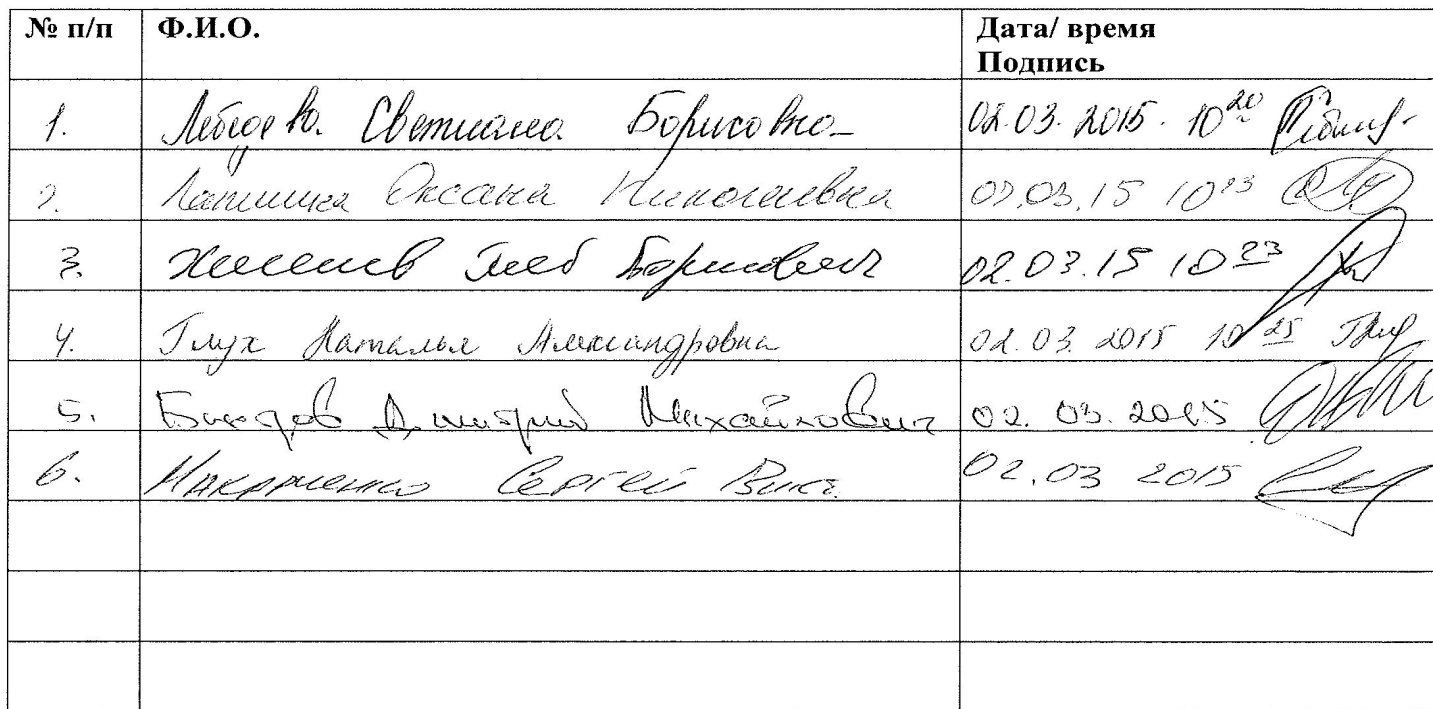 № п/п Ф.И.О. Дата/ время
Подпись
1. Лебедева Светлана Борисовна 02.03.2015. 10²⁰
2. Оксана Николаевна 02.03.15 10²³
3. Глеб Борисович 02.03.15 10²³
4. Глух Наталья Александровна 02.03.2015 10²⁵
5. Дмитрий Михайлович 02.03.2015
6. Макаренко Сергей Викт. 02.03 2015